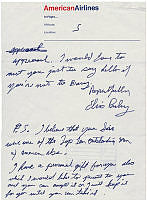 AmericanAirlines
In Flight...
Altitude...
Location...
5
approach. I would love to
meet you just to say hello if
you're not to busy.
Respectfully
Elvis Presley
P.S. I believe that you Sir
were one of the Top Ten outstanding men
of America also.
I have a personal gift for you also
which I would like to present to you
and you can accept it or I will keep it
for you until you can take it